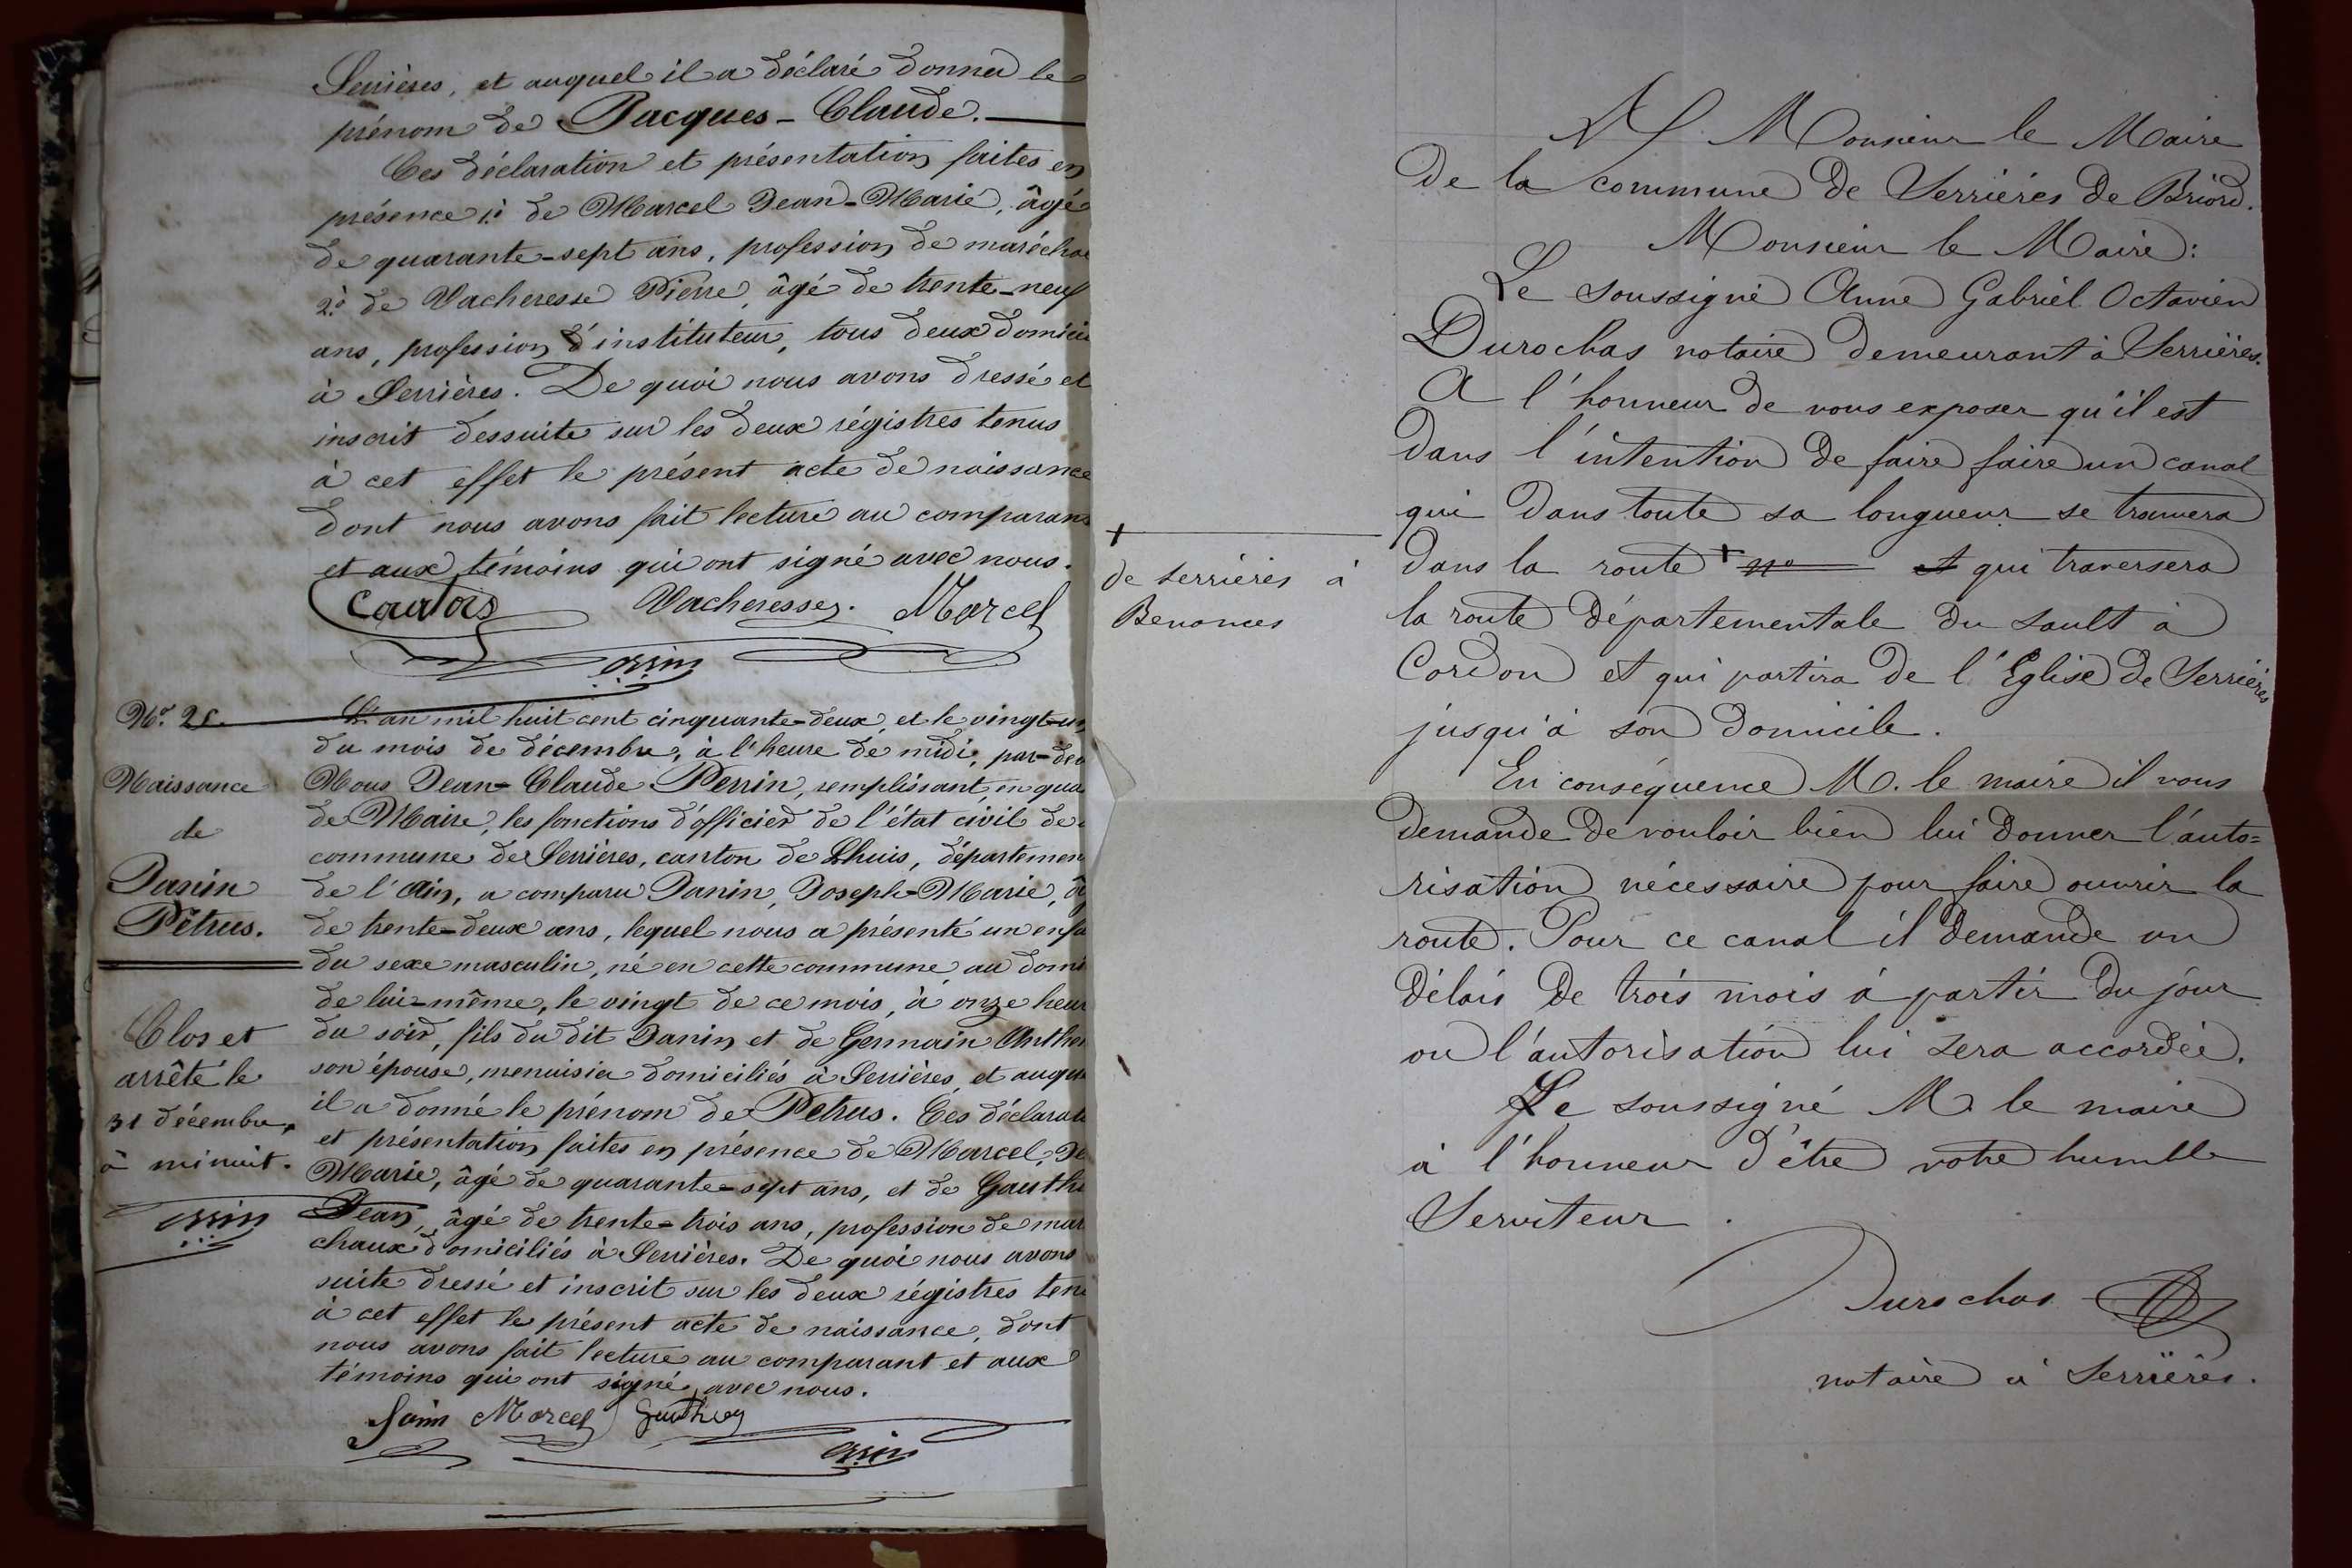 Serrières, et auquel il a déclaré donner le
prénom de Jacques-Claude.
Ces déclaration et présentation faites en
présence 1º de Marcel Jean-Marie, âgé
de quarante-sept ans, profession de marécha
2º de Vacheresse Pierre, âgé de trente-neuf
ans, profession d'instituteur, tous deux domici
à Serrières. De quoi nous avons dressé et
inscrit dessuite sur les deux régistres tenus
à cet effet le présent acte de naissance
dont nous avons fait lecture au comparant
et aux témoins qui ont signé avec nous.
Courtois Vacheresse. Marcel
Perrin
Nº. 25.
Naissance
de
Janin
Pétrus.
Clos et
arrêté le
31 décembre,
à minuit.
Perrin
L'an mil huit cent cinquante-deux, et le vingt-un
du mois de décembre, à l'heure de midi, par-dev
Nous Jean-Claude Perrin, remplissant en qua
de Maire, les fonctions d'officier de l'état civil de
commune de Serrières, canton de Lhuis, départemen
de l'Ain, a comparu Janin, Joseph-Marie, âg
de trente-deux ans, lequel nous a présenté un enfa
du sexe masculin, né en cette commune au domi
de lui-même, le vingt de ce mois, à onze heur
du soir, fils du dit Janin et de Germain Anthel
son épouse, menuisier domiciliés à Serrières, et auqu
il a donné le prénom de Petrus. Ces déclarat
et présentation faites en présence de Marcel, Je
Marie, âgé de quarante-sept ans, et de Gauthi
Jean, âgé de trente-trois ans, profession de mar
chaux domiciliés à Serrières. De quoi nous avons
suite dressé et inscrit sur les deux régistres ten
à cet effet le présent acte de naissance, dont
nous avons fait lecture au comparant et aux
témoins qui ont signé avec nous.
Janin Marcel Gauthier
Perrin
A Monsieur le Maire
de la commune de Serrières de Briord.
Monsieur le Maire:
Le soussigné Anne Gabriel Octavien
Durochas notaire demeurant à Serrières.
A l'honneur de vous exposer qu'il est
dans l'intention de faire faire un canal
qui dans toute sa longueur se trouvera
dans la route + no et qui traversera
+
de serrières à
Benonces
la route départementale du sault à
Cordon et qui partira de l'Eglise de Serrières
jusqu'à son domicile.
En conséquence M. le maire il vous
demande de vouloir bien lui donner l'auto=
risation nécessaire pour faire ouvrir la
route. Pour ce canal il demande un
délais de trois mois à partir du jour
ou l'autorisation lui sera accordée.
Le soussigné M. le maire
à l'honneur d'être votre humble
Serviteur.
Durochas
notaire à Serrières.